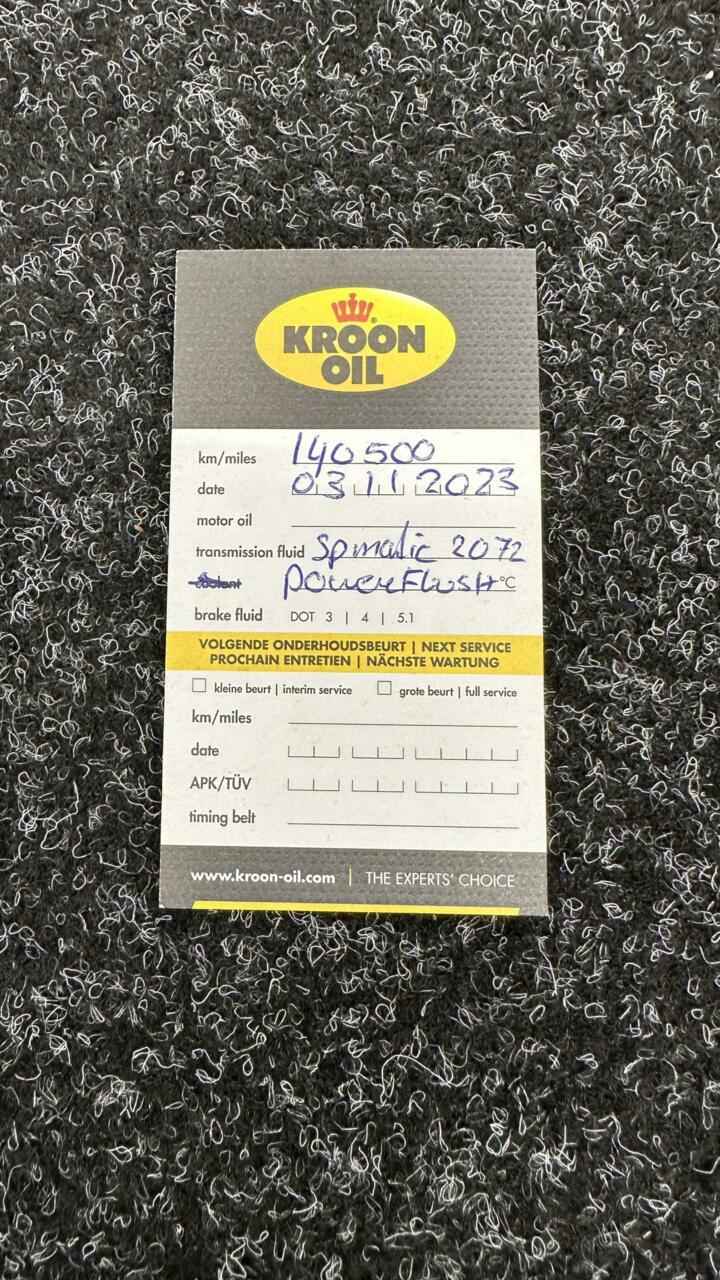 KROON
OIL
km/miles 140 500
date 03 11 2023
motor oil
transmission fluid spmatic 2072
coolant PowerFlush °C
brake fluid DOT 3 | 4 | 5.1
VOLGENDE ONDERHOUDSBEURT | NEXT SERVICE
PROCHAIN ENTRETIEN | NÄCHSTE WARTUNG
kleine beurt | interim service grote beurt | full service
km/miles
date
APK/TÜV
timing belt
www.kroon-oil.com | THE EXPERTS' CHOICE